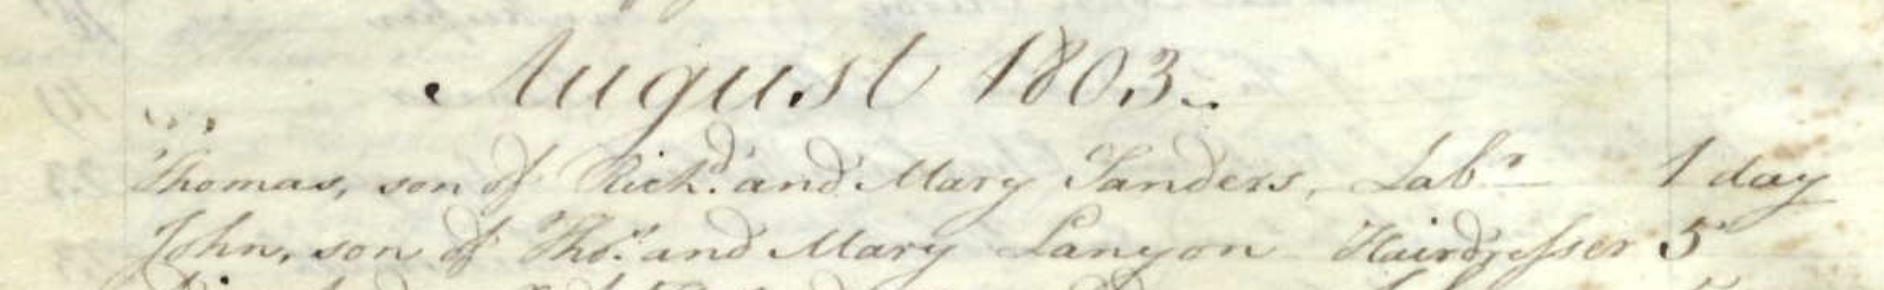 August 1803.
Thomas, son of Richd. and Mary Sanders, Labr 1 day
John, son of Thos. and Mary Lanyon Hairdresser 5